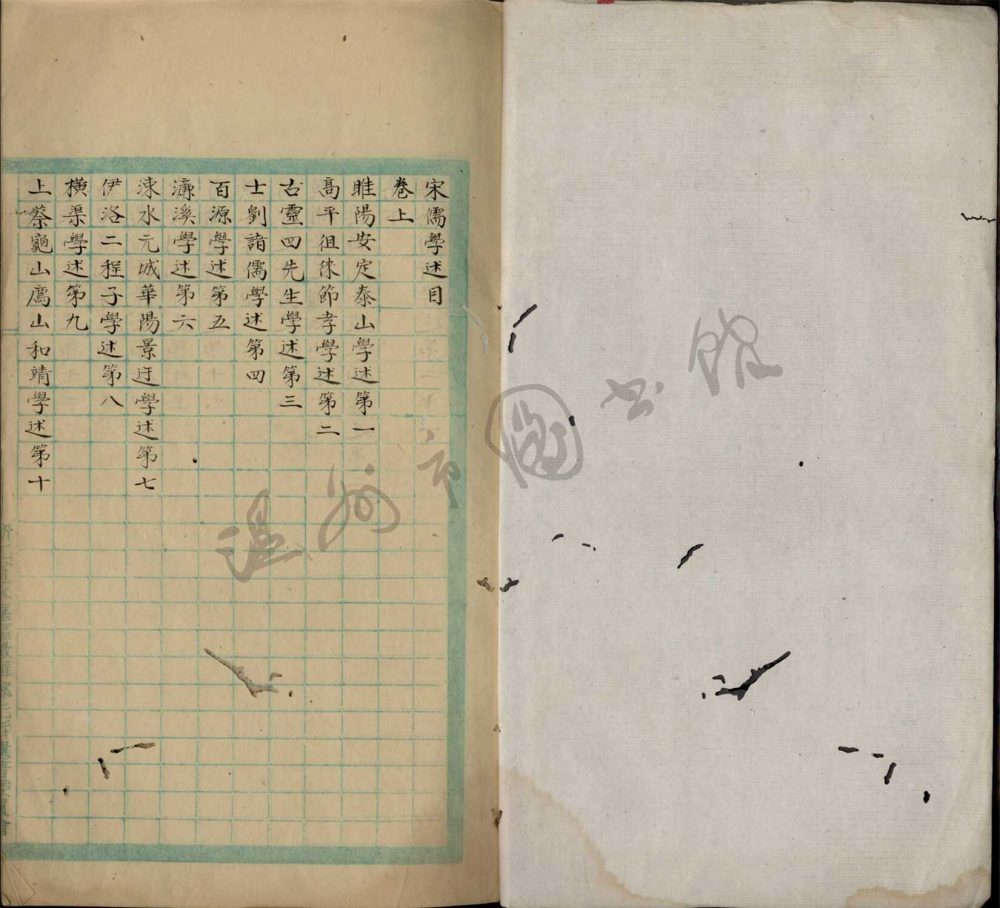 宋儒學述目
卷上
睢陽安定泰山學述第一
高平徂徠節孝學述第二
古靈四先生學述第三
士劉諸儒學述第四
百源學述第五
濂溪學述第六
涑水元城華陽景迂學述第七
伊洛二程子學述第八
橫渠學述第九
上蔡龜山廌山和靖學述第十
溫州市圖書館